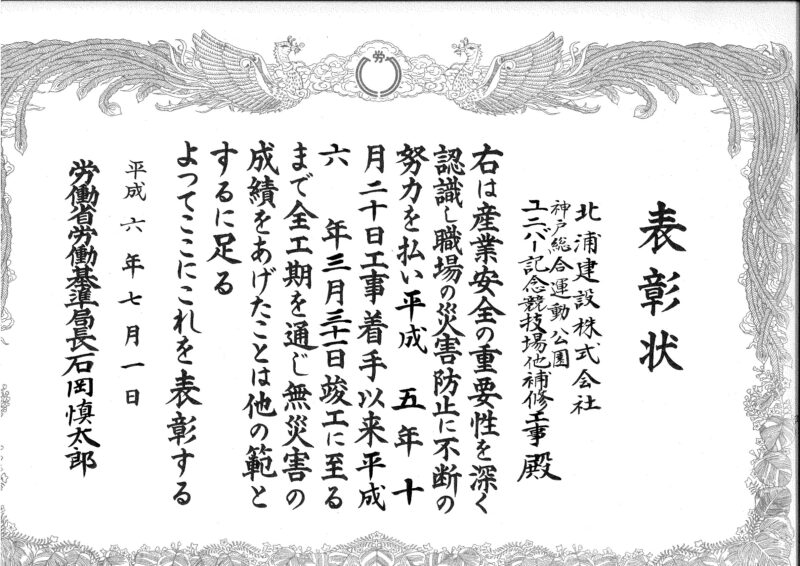 労
表彰状
北浦建設株式会社
神戸総合運動公園
ユニバー記念競技場他補修工事 殿
右は産業安全の重要性を深く
認識し職場の災害防止に不断の
努力を払い平成 五年 十
月二十日工事着手以来平成
六 年三月三十一日竣工に至る
まで全工期を通じ無災害の
成績をあげたことは他の範と
するに足る
よってここにこれを表彰する
平成 六年七月一日
労働省労働基準局長石岡慎太郎